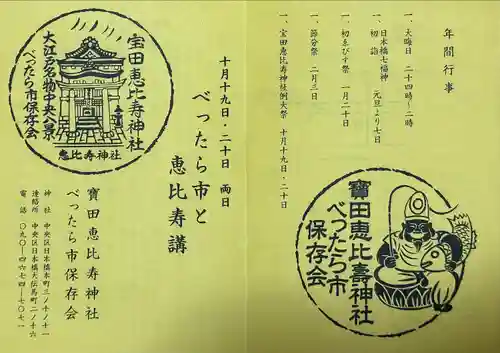 年間行事
一、大晦日　二十四時～二時
一、日本橋七福神
初詣　元旦より七日
一、初ゑびす祭　一月二十日
一、節分祭　二月三日
一、宝田恵比寿神社例大祭　十月十九日・二十日
寶田恵比壽神社
べったら市
保存会
十月十九日・二十日　両日
べったら市と
恵比寿講
寶田恵比寿神社
べったら市保存会
神社　中央区日本橋本町三ノ十ノ十一
連絡所　中央区日本橋大伝馬町二ノ十六
電話　〇九〇―四六七四―七〇七一
宝田恵比寿神社
大江戸名物中央八景
べったら市保存会
恵比寿神社